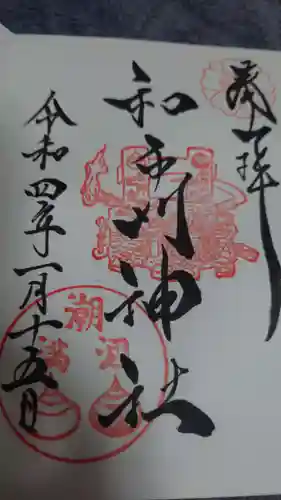 奉拝
和布刈神社
令和四年一月十五日
潮
満